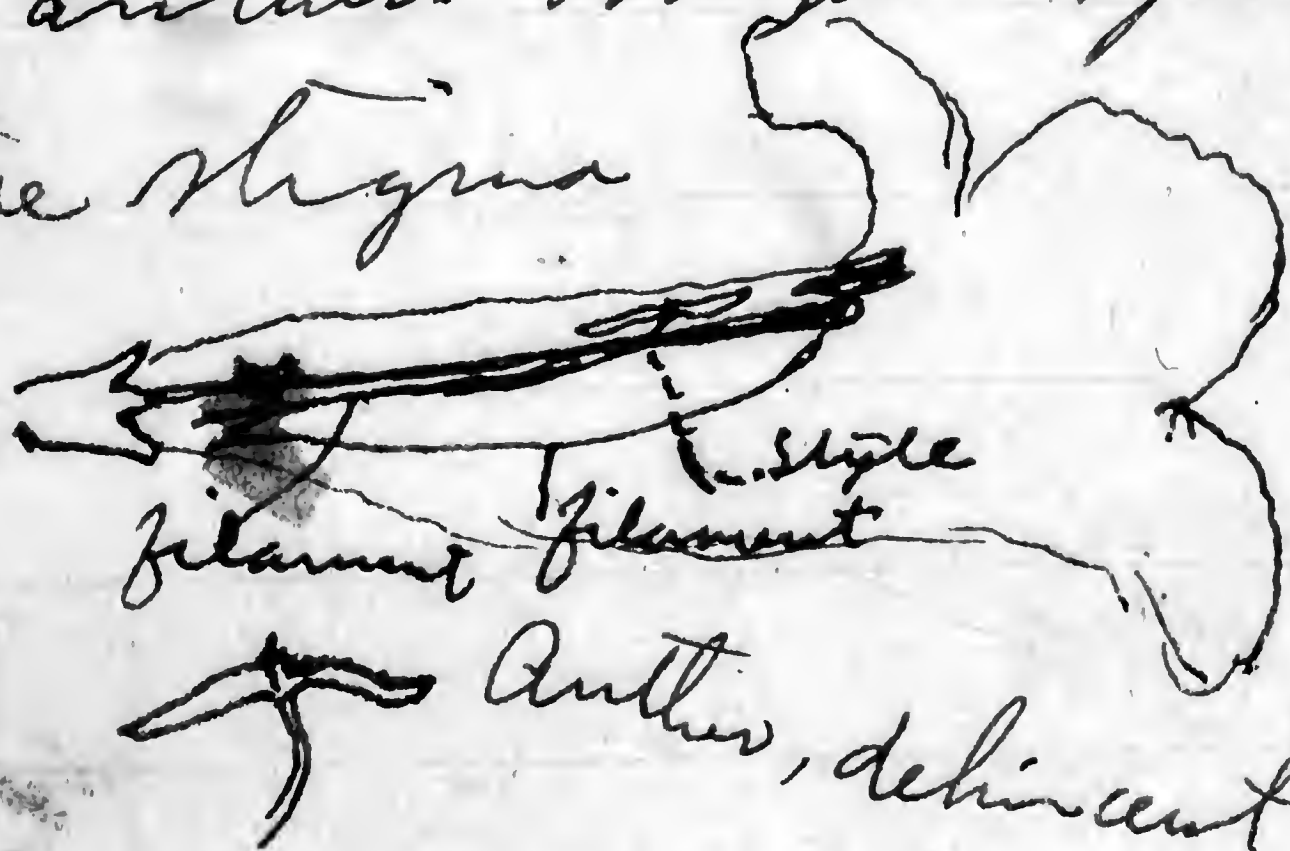 stigma
style
filament filament
Anther, dehincent